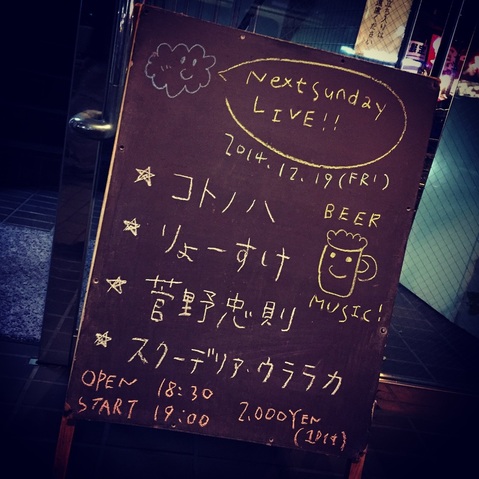 Next sunday
LIVE!!
2014.12.19(FRI)
☆ コトノハ
☆ りょーすけ
☆ 菅野忠則
☆ スクーデリア・ウララカ
BEER
MUSIC!
OPEN 18:30
START 19:00
2.000YEN